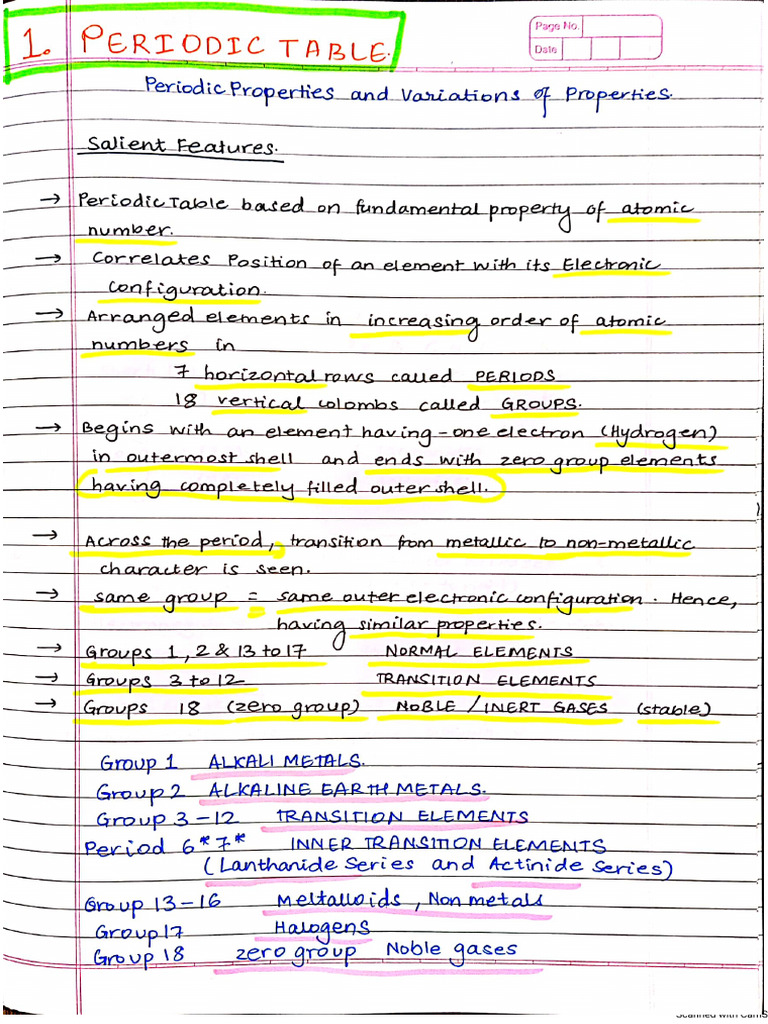 1. PERIODIC TABLE.
Page No.
Date
Periodic Properties and Variations of Properties.
Salient Features.
→ Periodic Table based on fundamental property of atomic
number.
→ Correlates Position of an element with its Electronic
configuration.
→ Arranged elements in increasing order of atomic
numbers in
7 horizontal rows called PERIODS
18 vertical colombs called GROUPS.
→ Begins with an element having-one electron (Hydrogen)
in outermost shell and ends with zero group elements
having completely filled outer shell.
→ Across the period, transition from metallic to non-metallic
character is seen.
→ same group = same outer electronic configuration. Hence,
having similar properties.
→ Groups 1, 2 & 13 to 17 NORMAL ELEMENTS
→ Groups 3 to 12 TRANSITION ELEMENTS
→ Groups 18 (zero group) NOBLE / INERT GASES (stable)
Group 1 ALKALI METALS.
Group 2 ALKALINE EARTH METALS.
Group 3-12 TRANSITION ELEMENTS
Period 6*7* INNER TRANSITION ELEMENTS
(Lanthanide Series and Actinide Series)
Group 13-16 Meltalloids, Non metals
Group 17 Halogens
Group 18 zero group Noble gases